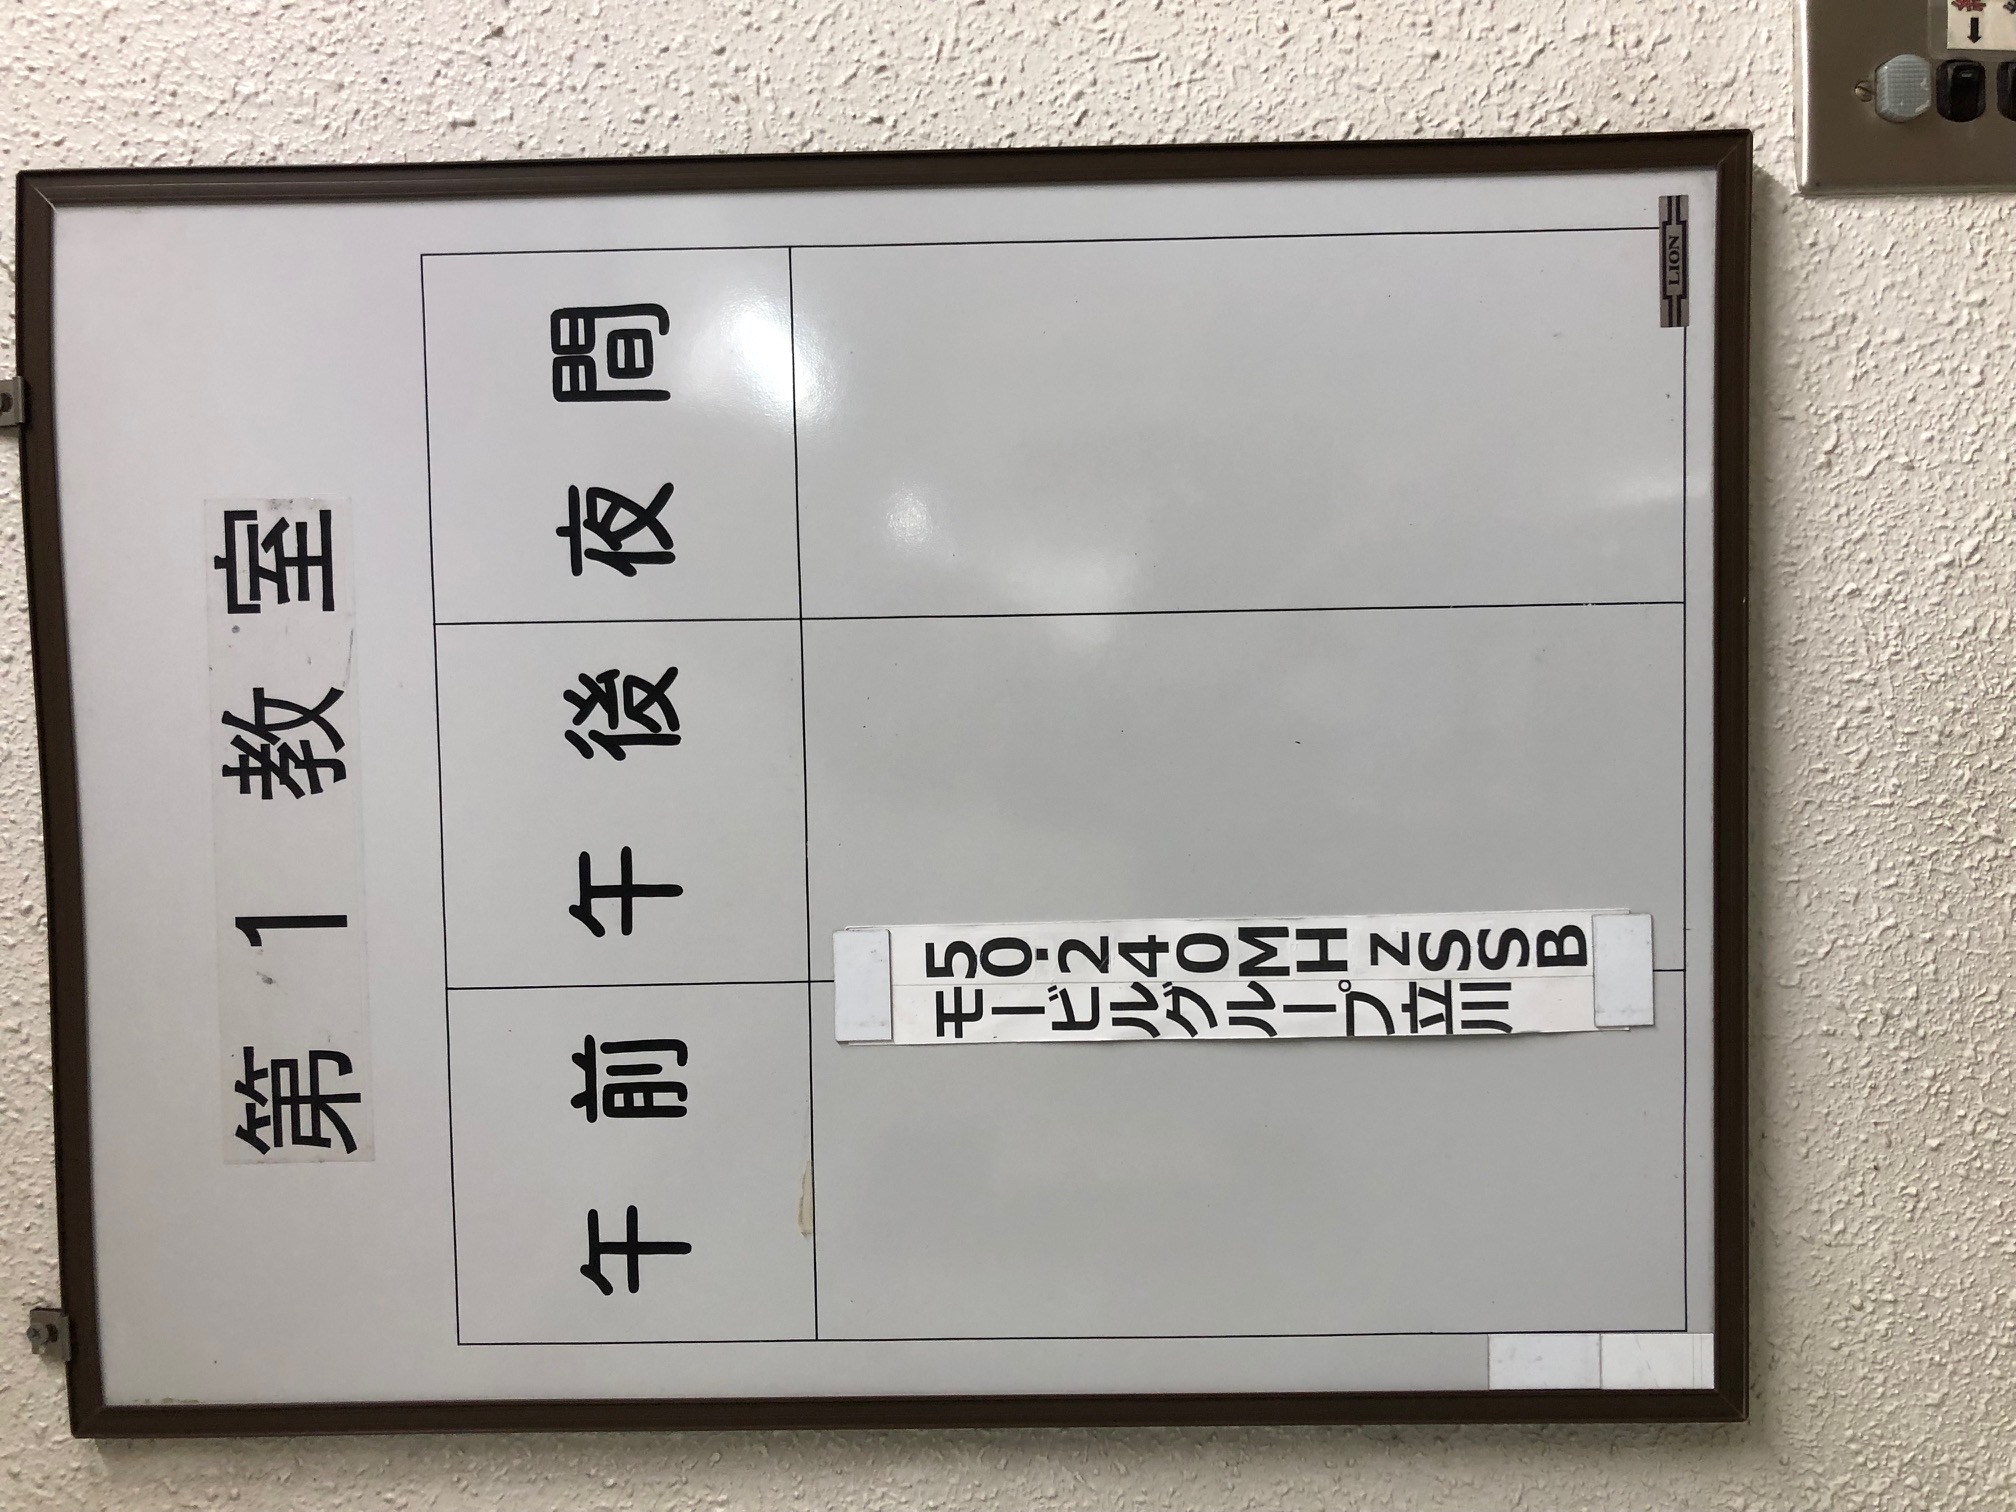 第1教室
午前
午後
夜間
50.240MHzSSB
モービルグループ立川
LION